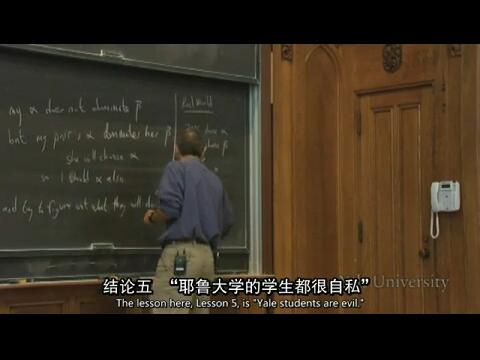 my α does not dominate β
but my pair's α dominates her β
she will choose α
so I should α also
and try to figure out what they will do
Real World
chose α
University
结论五 “耶鲁大学的学生都很自私”
The lesson here, Lesson 5, is "Yale students are evil."